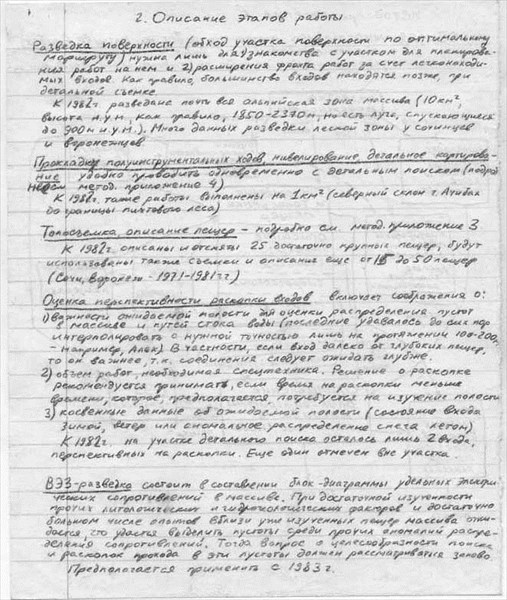 2. Описание этапов работы
Разведка поверхности (обход участка поверхности по оптимальному
маршруту) нужна лишь для 1) знакомства с участком для планирова-
ния работ на нем и 2) расширения фронта работ за счет легконаходи-
мых входов. Как правило, большинство входов находятся позже, при
детальной съемке.
К 1982г разведана почти вся альпийская зона массива (10км²,
высота н.у.м., как правило, 1850-2370м, но есть луга, спускающиеся
до 900м н.у.м.). Много данных разведки лесной зоны у сочинцев
и воронежцев
Прокладку полуинструментальных ходов, нивелирование, детальное картирова-
ние удобно проводить одновременно с детальным поиском (подроб
метод. приложение 4)
К 1982г. такие работы выполнены на 1км² (северный склон г. Ачибах
до границы пихтового леса)
Топосъемка, описание пещер - подробно см. метод. приложение 3
К 1982г. описаны и отсняты 25 достаточно крупных пещер, будут
использованы также съемки и описания еще от 15 до 50 пещер
(Сочи, Воронеж - 1971-1981г.г.)
Оценка перспективности раскопки входов включает соображения о:
1) важности ожидаемой полости для оценки распределения пустот
в массиве и путей стока воды (последние удавалось до сих пор
интерполировать с нужной точностью лишь на протяжении 100-200м
- например, Алек) В частности, если вход далеко от глубоких пещер,
то он важнее, т.к. соединения следует ожидать глубже.
2) объем работ, необходимая спецтехника. Решение о раскопке
рекомендуется принимать, если время на раскопки меньше
времени, которое, предполагается, потребуется на изучение полости
3) косвенные данные об ожидаемой полости (состояние входа
зимой, ветер или аномальное распределение снега летом)
К 1982г. на участке детального поиска осталось лишь 2 входа,
перспективных на раскопки. Еще один отмечен вне участка.
ВЭЗ-разведка состоит в составлении блок-диаграммы удельных электри-
ческих сопротивлений в массиве. При достаточной изученности
прочих литологических и гидрогеологических факторов и достаточно
большом числе опытов вблизи уже изученных пещер массива ожи-
дается, что удастся выделить пустоты среди прочих аномалий распре-
деления сопротивлений. Тогда вопрос о целесообразности поиска
и раскопок прохода в эти пустоты должен рассматриваться заново
Предполагается применить с 1983г.